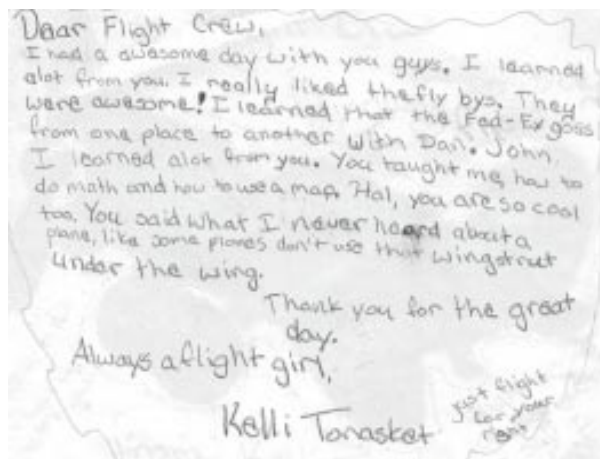 Dear Flight Crew,
I had a awesome day with you guys. I learned
alot from you. I really liked the fly bys. They
were awesome! I learned that the Fed-Ex goes
from one place to another with Dan. John,
I learned alot from you. You taught me how to
do math and how to use a map. Hal, you are so cool
too. You said what I never heard about a
plane, like some planes don't use that wingstrut
under the wing.
Thank you for the great
day.
Always a flight girl,
Kelli Tonasket
just flight
for your